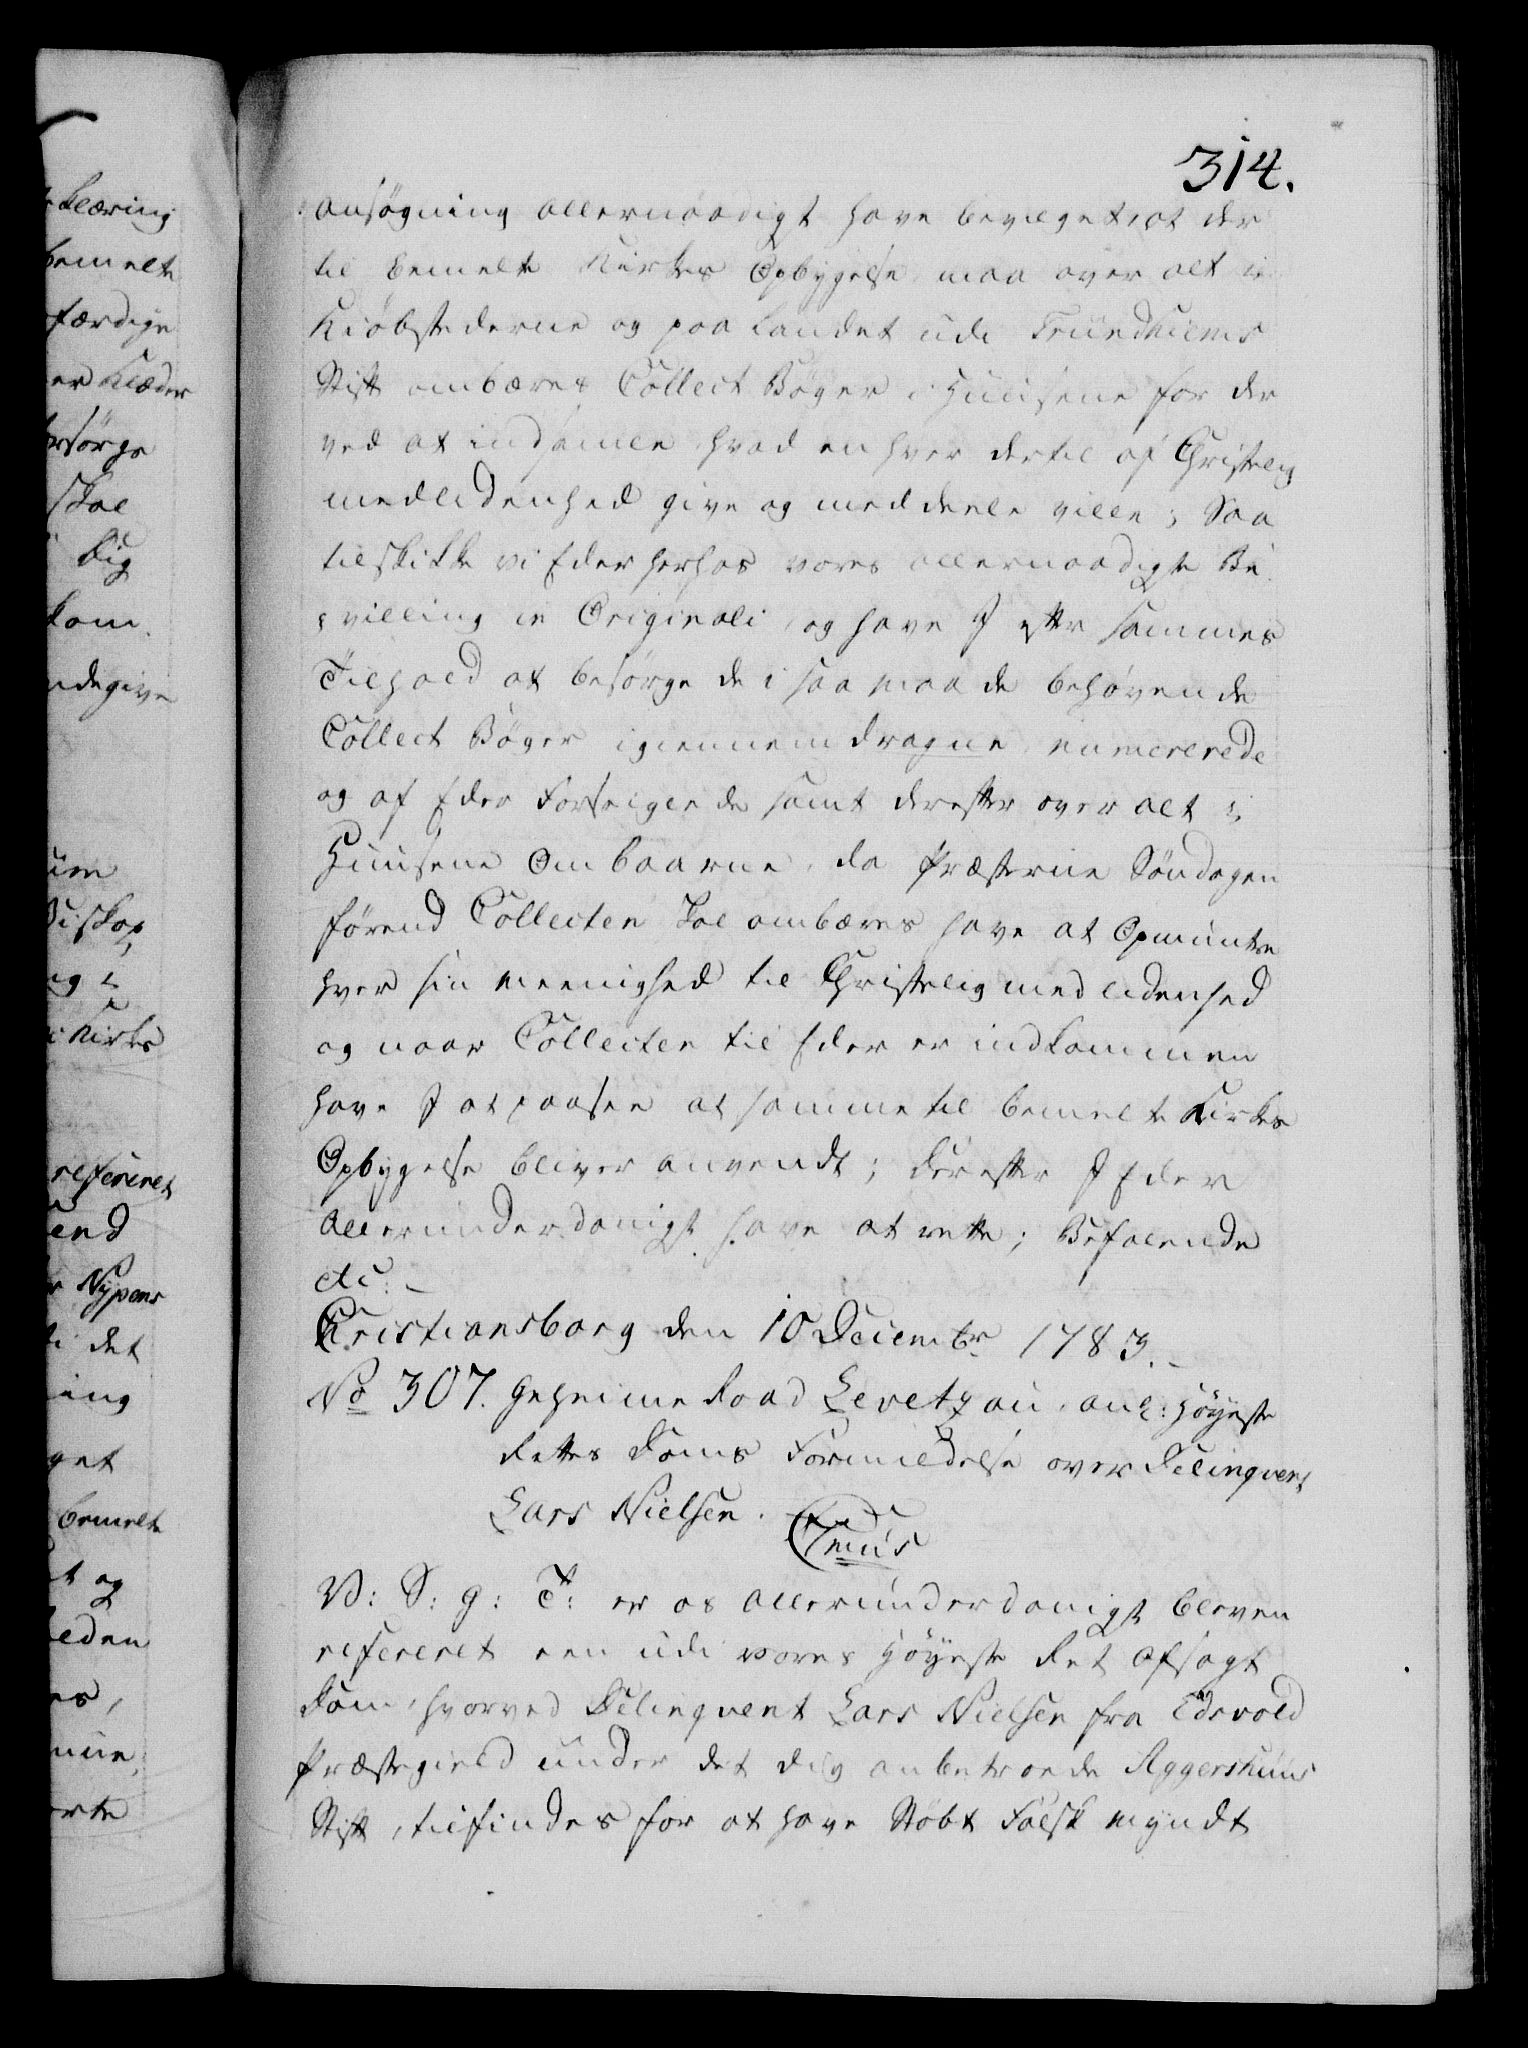 314.
ansøgning allernaadigst have bevilget, at der
til bemelte Kirkes Opbygelse maa over alt i
Kiøbstederne og paa Landet udi Trundhiems
Stift ombæres Collect Bøger i Huusene for der
ved at indsamle hvad en hver dertil af Christelig
medlidenhed give og meddeele ville; Saa
tilskikke vi Eder herhos vores allernaadigste Be
villing in Originali, og have I efter sammes
Tilhold at besørge de i saa maade behøvende
Collect Bøger igiennemdragne, numererede
og af Eder Forseiglede samt derefter over alt i
Huusene Ombaarne, da Præsterne Søndagen
førend Collecten skal ombæres have at Opmuntre
hver sin Meenighed til Christelig medlidenhed
og naar Collecten til Eder er indkommen
have I at paasee at samme til bemelte Kirkes
Opbygelse bliver anvendt; Derefter I Eder
allerunderdanigst have at rette; Befalende
etc: –
Christiansborg den 10 Decembr 1783. –
No 307. Geheime Raad Levetzau, anl: Høyeste
Rettes Doms Formildelse over Delinqvent
Lars Nielsen.
V: S: g: T: er os allerunderdanigst bleven
refereret een udi vores Høyeste Ret afsagt
Dom, hvorved Delinqvent Lars Nielsen fra Edsvold
Præstegield under det dig anbetroede Aggershuus
Stift, tilfindes for at have Støbt Falsk Myndt